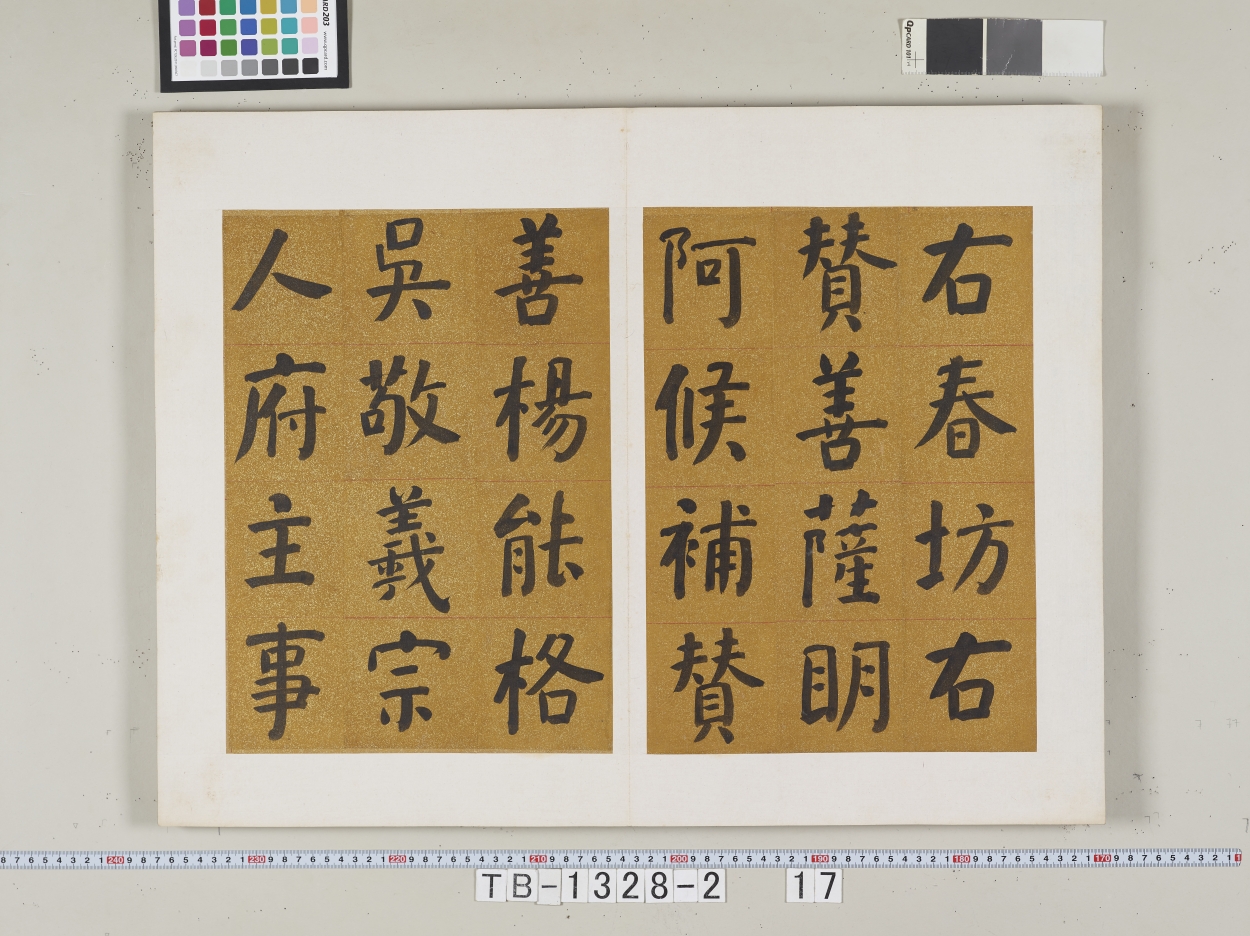 右春坊右
賛善薩明
阿候補賛
善楊能格
吳敬義宗
人府主事
TB-1328-2 17